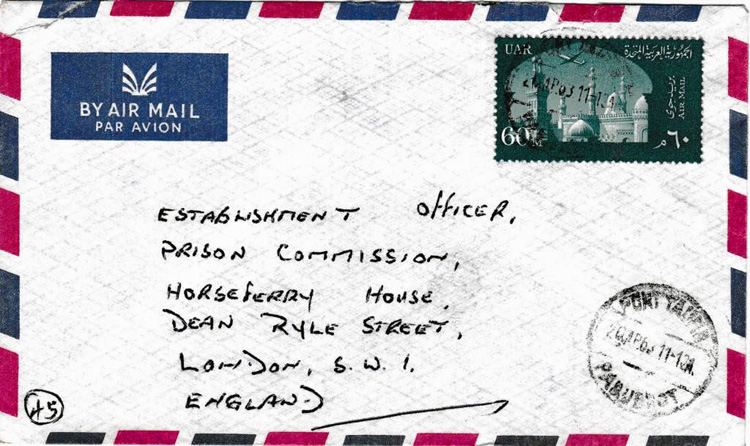 BY AIR MAIL
PAR AVION
UAR
الجمهورية العربية المتحدة
بريد جوى
AIR MAIL
60M
٦٠ م
ESTABLISHMENT OFFICER,
PRISON COMMISSION,
HORSEFERRY HOUSE,
DEAN RYLE STREET,
LONDON, S.W.1.
ENGLAND
PORT TAUFIQ
26.AP.63 11-12M
PAQUEBOT
45